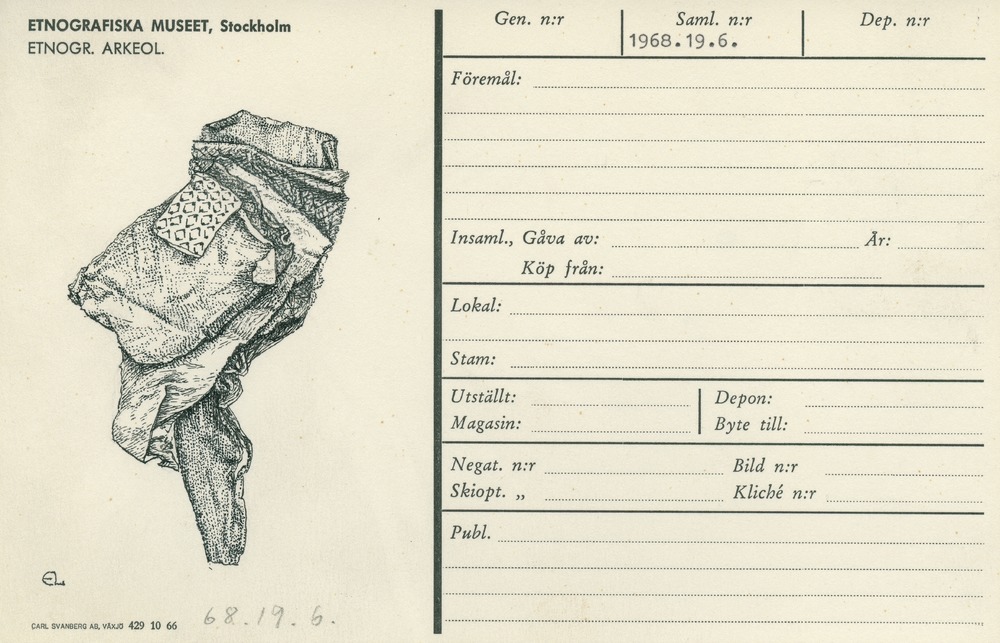 ETNOGRAFISKA MUSEET, Stockholm
ETNOGR. ARKEOL.
EL
CARL SVANBERG AB, VÄXJÖ 429 10 66
68.19.6.
Gen. n:r
Saml. n:r
1968.19.6.
Dep. n:r
Föremål:
Insaml., Gåva av:
År:
Köp från:
Lokal:
Stam:
Utställt:
Depon:
Magasin:
Byte till:
Negat. n:r
Bild n:r
Skiopt. „
Kliché n:r
Publ.